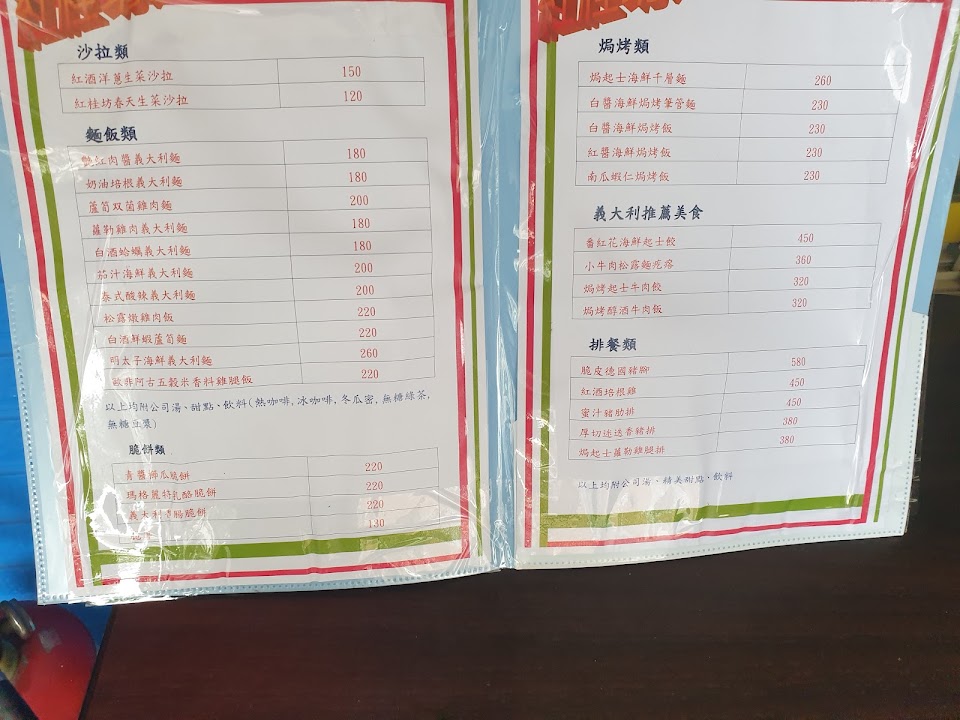 沙拉類
紅酒洋蔥生菜沙拉 150
紅桂坊春天生菜沙拉 120
麵飯類
紅肉醬義大利麵 180
奶油培根義大利麵 180
蘆筍双菌雞肉麵 200
蘿勒雞肉義大利麵 180
白酒蛤蠣義大利麵 180
茄汁海鮮義大利麵 200
泰式酸辣義大利麵 200
松露燉雞肉飯 220
白酒鮮蝦蘆筍麵 220
明太子海鮮義大利麵 260
歐非阿古五穀米香料雞腿飯 220
以上均附公司湯、甜點、飲料(熱咖啡,冰咖啡,冬瓜蜜,無糖綠茶,
無糖豆漿)
脆餅類
青醬節瓜脆餅 220
瑪格麗特乳酪脆餅 220
義大利臘腸脆餅 220
130
焗烤類
焗起士海鮮千層麵 260
白醬海鮮焗烤筆管麵 230
白醬海鮮焗烤飯 230
紅醬海鮮焗烤飯 230
南瓜蝦仁焗烤飯 230
義大利推薦美食
番紅花海鮮起士餃 450
小牛肉松露麵疙瘩 360
焗烤起士牛肉餃 320
焗烤醇酒牛肉飯 320
排餐類
脆皮德國豬腳 580
紅酒培根雞 450
蜜汁豬肋排 450
厚切迷迭香豬排 380
焗起士蘿勒雞腿排 380
以上均附公司湯、精美甜點、飲料